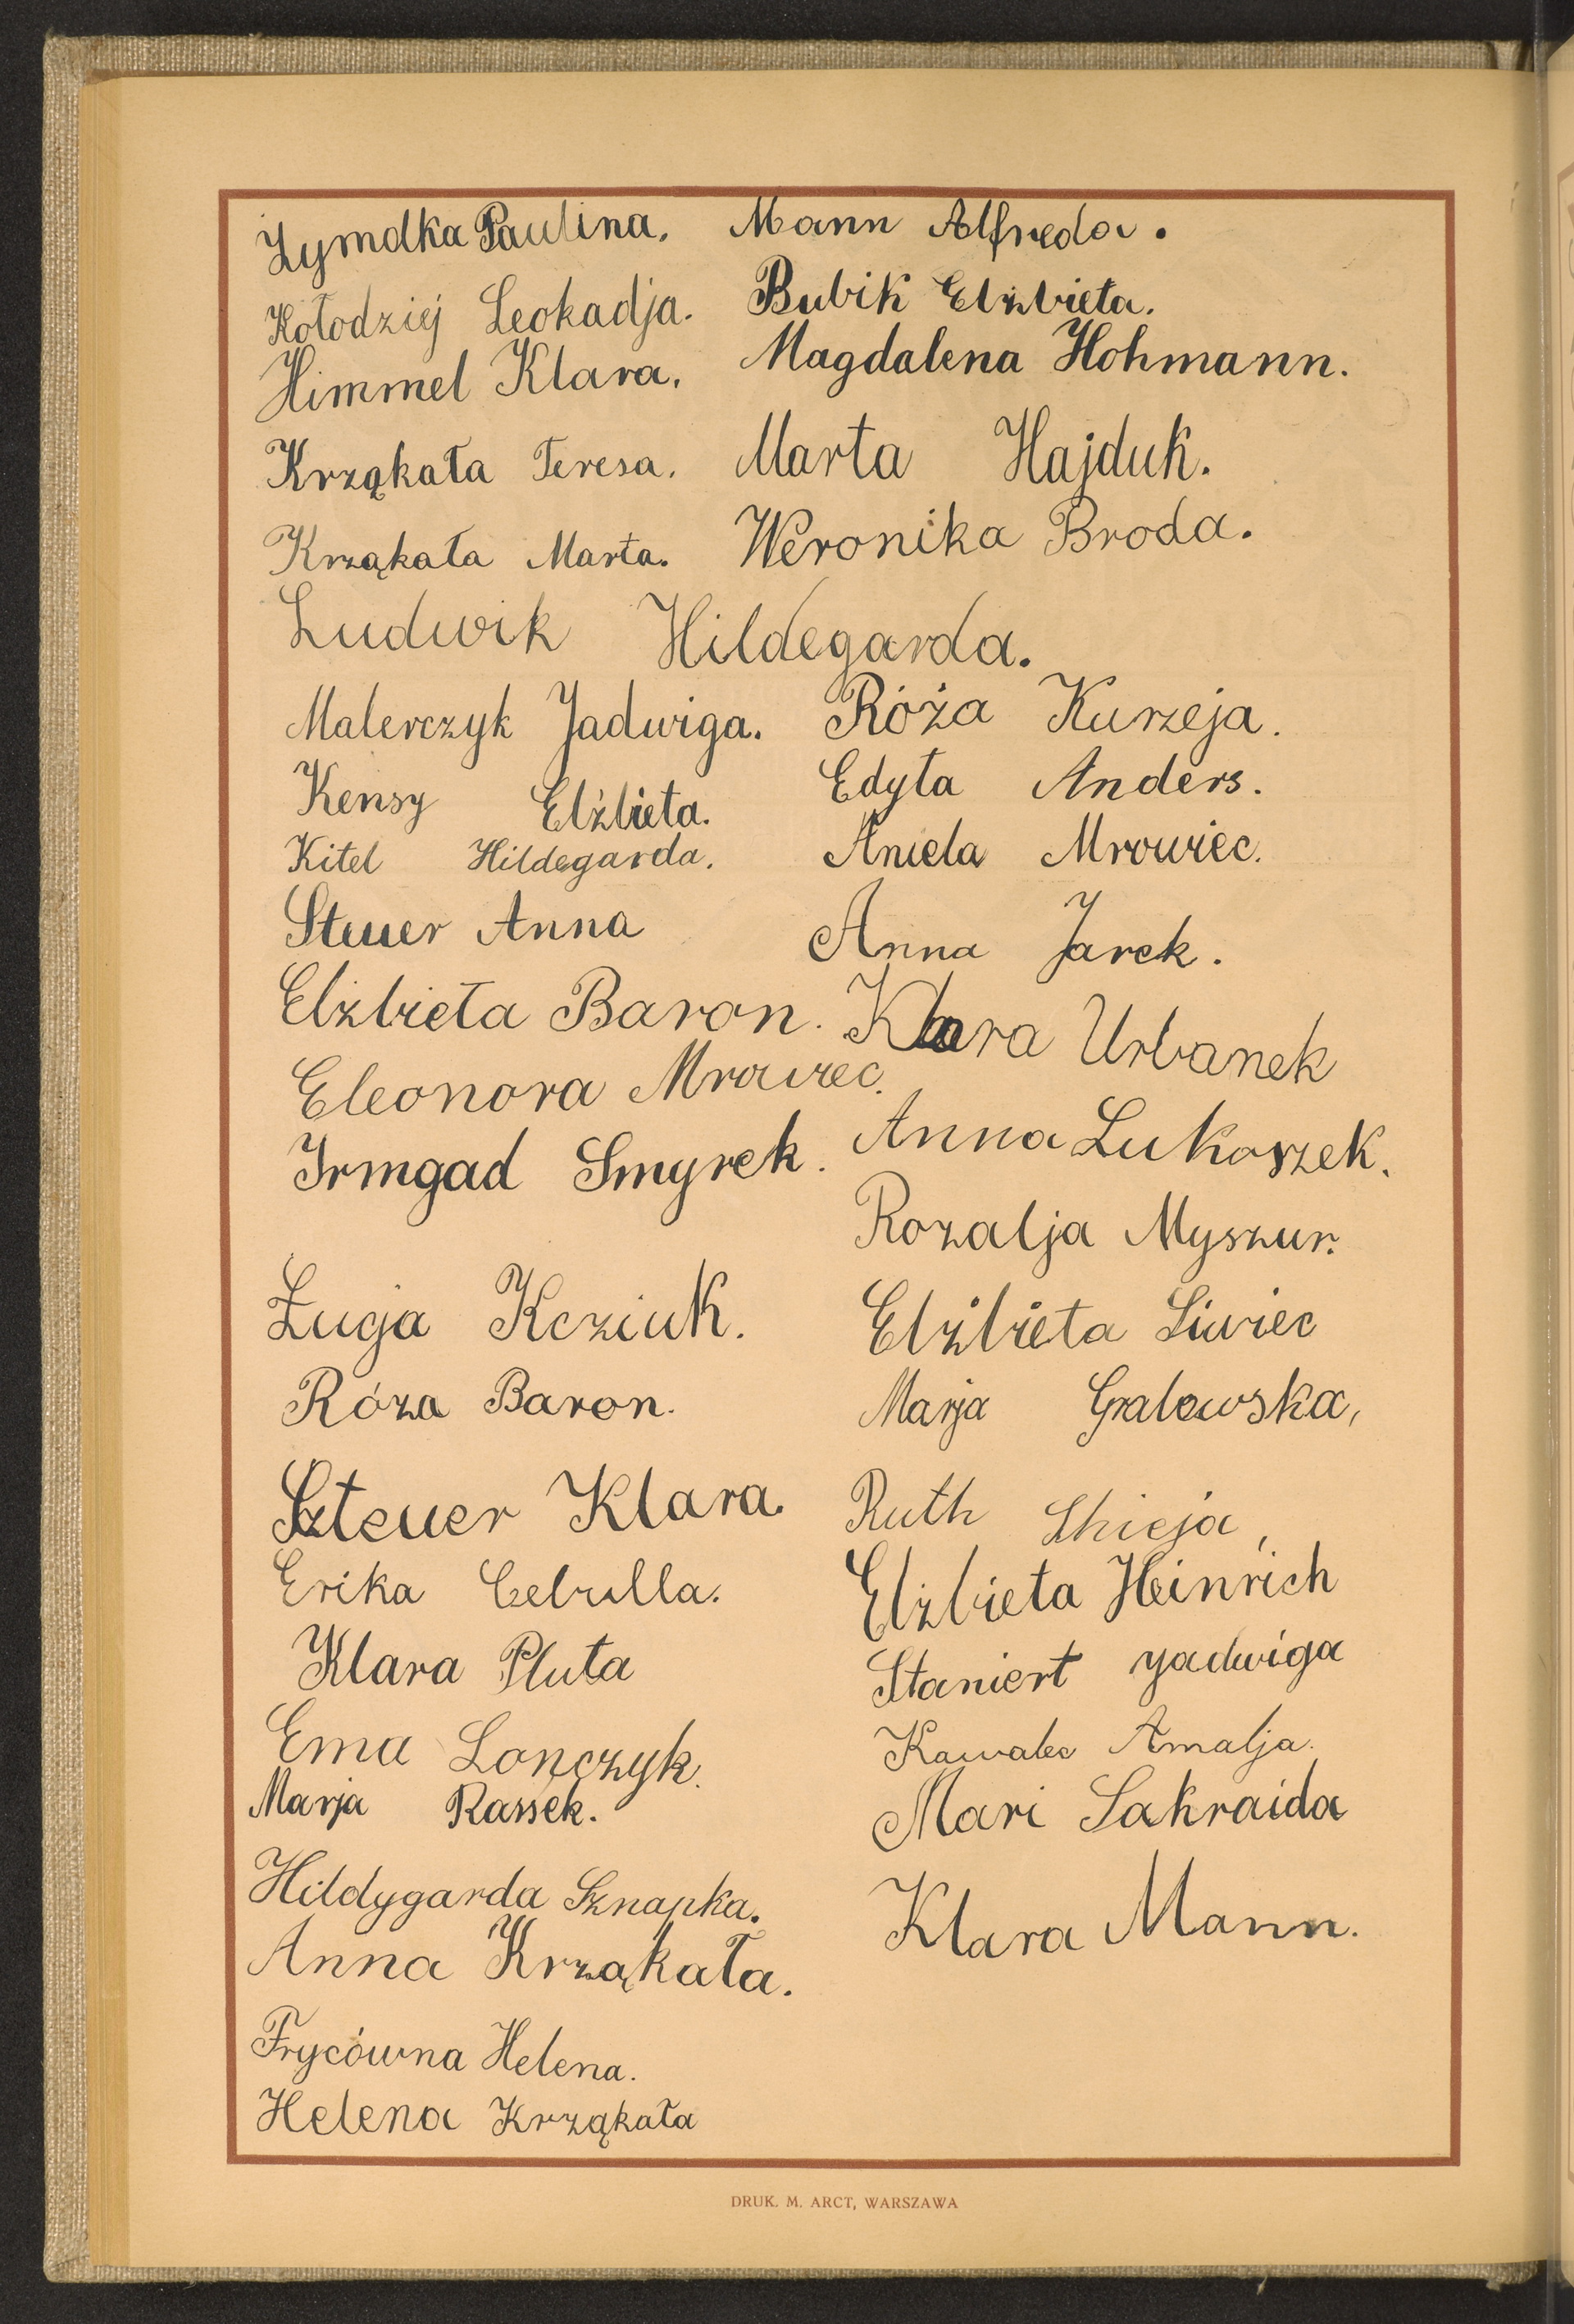 Żymdka Paulina. Mann Alfreda.
Kołodziej Leokadja. Bubik Elżbieta.
Himmel Klara. Magdalena Hohmann.
Krząkała Teresa. Marta Hajduk.
Krząkała Marta. Weronika Broda.
Ludwik Hildegarda.
Malerczyk Jadwiga. Róża Kurzeja.
Kensy Elżbieta. Edyta Anders.
Kitel Hildegarda. Aniela Mrowiec.
Steuer Anna Anna Jarek.
Elżbieta Baron. Klara Urbanek
Eleonora Mrowiec.
Irmgad Smyrek. Anna Lukaszek.
Rozalja Myszur.
Łucja Kcziuk. Elżbieta Siwiec
Róża Baron. Marja Gralowska,
Szteuer Klara. Ruth
Erika Cebulla. Elżbieta Heinrich
Klara Pluta Staniert Jadwiga
Ema Lonczyk. Kawalec Amalja.
Marja Rassek. Mari Sakraida
Hildygarda Sznapka. Klara Mann.
Anna Krząkała.
Frycówna Helena.
Helena Krząkała
DRUK. M. ARCT, WARSZAWA